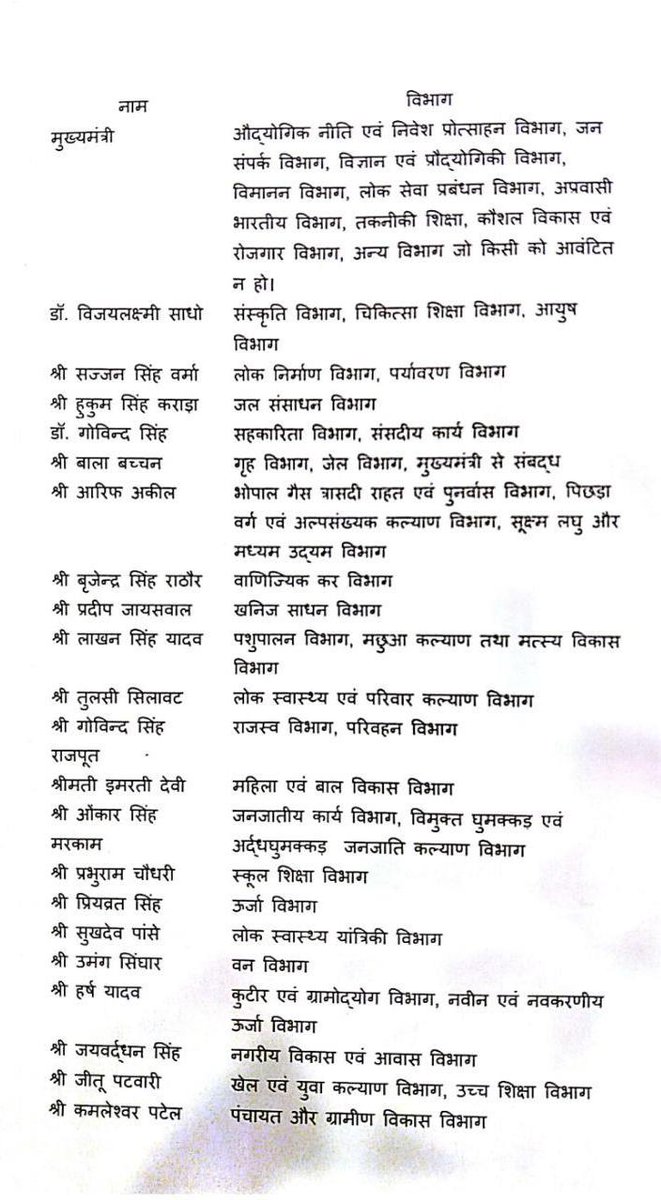 नाम विभाग
मुख्यमंत्री औद्योगिक नीति एवं निवेश प्रोत्साहन विभाग, जन
संपर्क विभाग, विज्ञान एवं प्रौद्योगिकी विभाग,
विमानन विभाग, लोक सेवा प्रबंधन विभाग, अप्रवासी
भारतीय विभाग, तकनीकी शिक्षा, कौशल विकास एवं
रोजगार विभाग, अन्य विभाग जो किसी को आवंटित
न हो।
डॉ. विजयलक्ष्मी साधो संस्कृति विभाग, चिकित्सा शिक्षा विभाग, आयुष
विभाग
श्री सज्जन सिंह वर्मा लोक निर्माण विभाग, पर्यावरण विभाग
श्री हुकुम सिंह कराड़ा जल संसाधन विभाग
डॉ. गोविन्द सिंह सहकारिता विभाग, संसदीय कार्य विभाग
श्री बाला बच्चन गृह विभाग, जेल विभाग, मुख्यमंत्री से संबद्ध
श्री आरिफ अकील भोपाल गैस त्रासदी राहत एवं पुनर्वास विभाग, पिछड़ा
वर्ग एवं अल्पसंख्यक कल्याण विभाग, सूक्ष्म लघु और
मध्यम उद्यम विभाग
श्री बृजेन्द्र सिंह राठौर वाणिज्यिक कर विभाग
श्री प्रदीप जायसवाल खनिज साधन विभाग
श्री लाखन सिंह यादव पशुपालन विभाग, मछुआ कल्याण तथा मत्स्य विकास
विभाग
श्री तुलसी सिलावट लोक स्वास्थ्य एवं परिवार कल्याण विभाग
श्री गोविन्द सिंह राजस्व विभाग, परिवहन विभाग
राजपूत
श्रीमती इमरती देवी महिला एवं बाल विकास विभाग
श्री ओंकार सिंह जनजातीय कार्य विभाग, विमुक्त घुमक्कड़ एवं
मरकाम अर्द्धघुमक्कड़ जनजाति कल्याण विभाग
श्री प्रभुराम चौधरी स्कूल शिक्षा विभाग
श्री प्रियव्रत सिंह ऊर्जा विभाग
श्री सुखदेव पांसे लोक स्वास्थ्य यांत्रिकी विभाग
श्री उमंग सिंघार वन विभाग
श्री हर्ष यादव कुटीर एवं ग्रामोद्योग विभाग, नवीन एवं नवकरणीय
ऊर्जा विभाग
श्री जयवर्द्धन सिंह नगरीय विकास एवं आवास विभाग
श्री जीतू पटवारी खेल एवं युवा कल्याण विभाग, उच्च शिक्षा विभाग
श्री कमलेश्वर पटेल पंचायत और ग्रामीण विकास विभाग